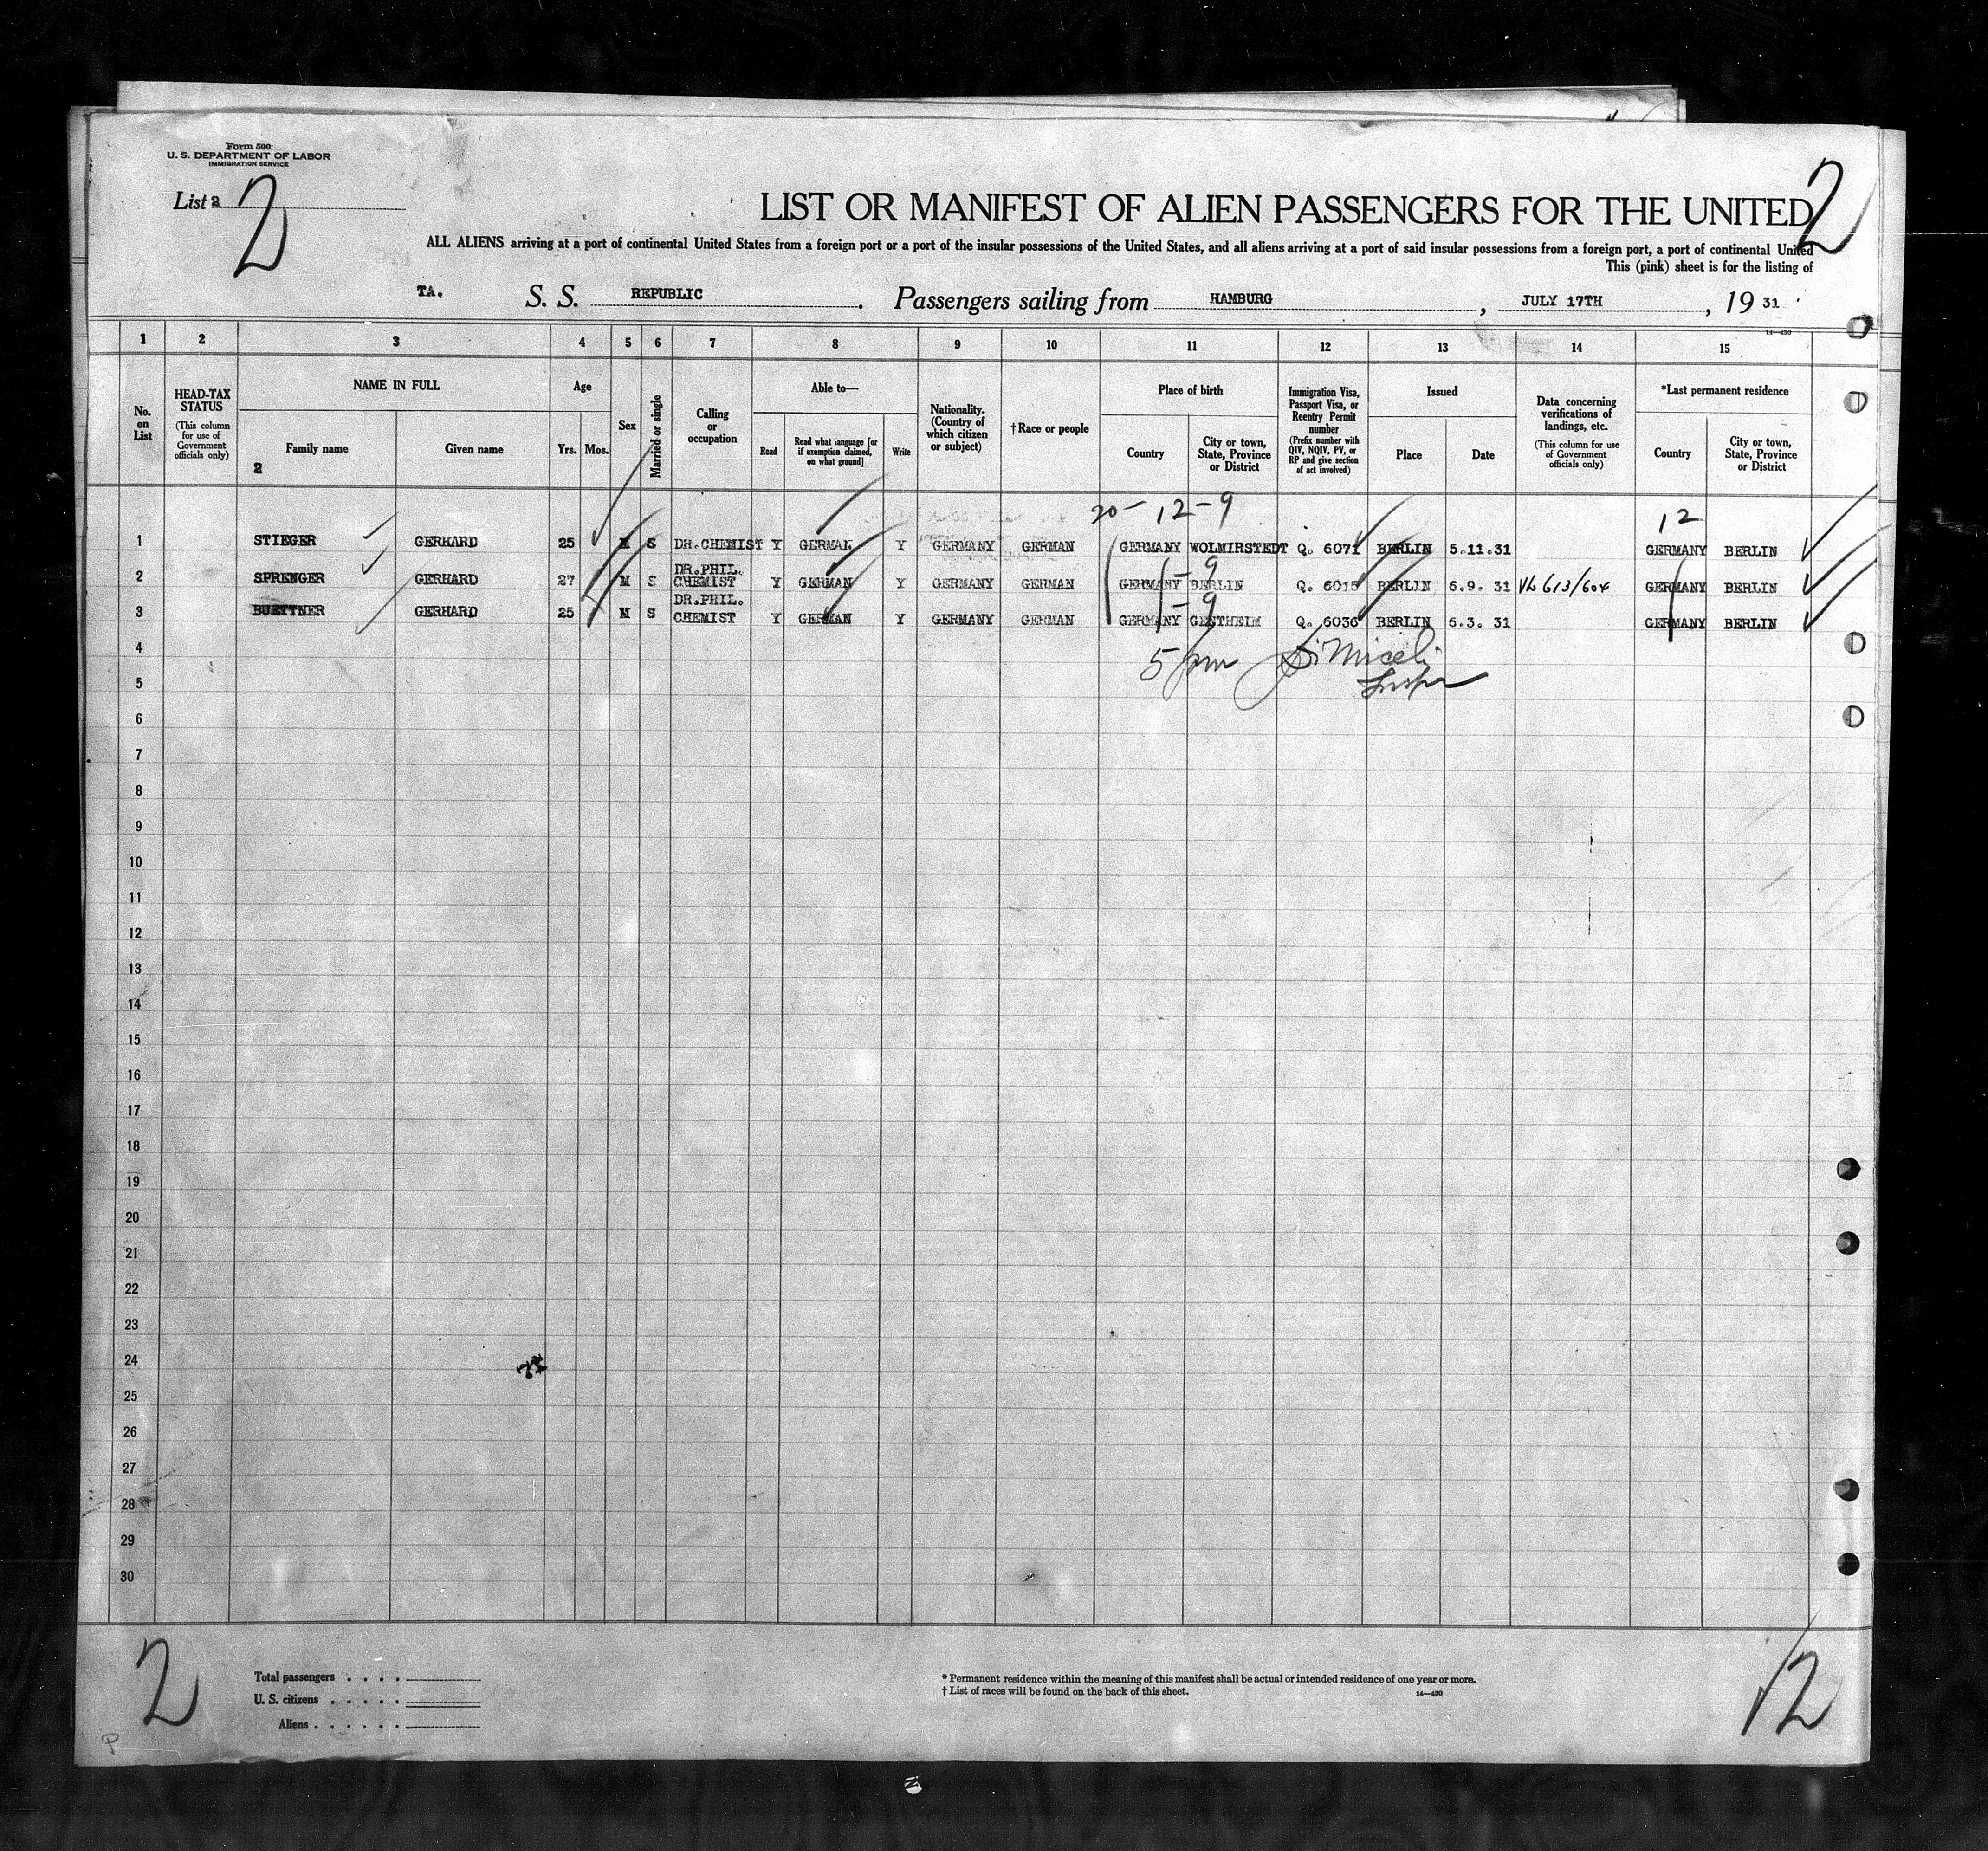 Form 500
U. S. DEPARTMENT OF LABOR
IMMIGRATION SERVICE
List 2
2
2
LIST OR MANIFEST OF ALIEN PASSENGERS FOR THE UNITED
ALL ALIENS arriving at a port of continental United States from a foreign port or a port of the insular possessions of the United States, and all aliens arriving at a port of said insular possessions from a foreign port, a port of continental United
This (pink) sheet is for the listing of
TA. S. S. REPUBLIC. Passengers sailing from HAMBURG, JULY 17TH, 19 31
14—430
1 2 3 4 5 6 7 8 9 10 11 12 13 14 15
No. on List
HEAD-TAX STATUS (This column for use of Government officials only)
NAME IN FULL
Family name
2
Given name
Age
Yrs. Mos.
Sex
Married or single
Calling or occupation
Able to—
Read
Read what language [or if exemption claimed, on what ground]
Write
Nationality. (Country of which citizen or subject)
†Race or people
Place of birth
Country
City or town, State, Province or District
Immigration Visa, Passport Visa, or Reentry Permit number (Prefix number with QIV, NQIV, PV, or RP and give section of act involved)
Issued
Place
Date
Data concerning verifications of landings, etc. (This column for use of Government officials only)
*Last permanent residence
Country
City or town, State, Province or District
20-12-9
12
1 STIEGER GERHARD 25 M S DR.CHEMIST Y GERMAN Y GERMANY GERMAN GERMANY WOLMIRSTEDT Q. 6071 BERLIN 5.11.31 GERMANY BERLIN
-9
2 SPRENGER GERHARD 27 M S DR.PHIL. CHEMIST Y GERMAN Y GERMANY GERMAN GERMANY BERLIN Q. 6015 BERLIN 6.9. 31 VL 613/604 GERMANY BERLIN
-9
3 BUETTNER GERHARD 25 M S DR.PHIL. CHEMIST Y GERMAN Y GERMANY GERMAN GERMANY Q. 6036 BERLIN 6.3. 31 GERMANY BERLIN
5 pm
4
5
6
7
8
9
10
11
12
13
14
15
16
17
18
19
20
21
22
23
24
25
26
27
28
29
30
2
Total passengers . . . .
U. S. citizens . . . . .
Aliens . . . . . .
* Permanent residence within the meaning of this manifest shall be actual or intended residence of one year or more.
† List of races will be found on the back of this sheet.
14—430
12
P